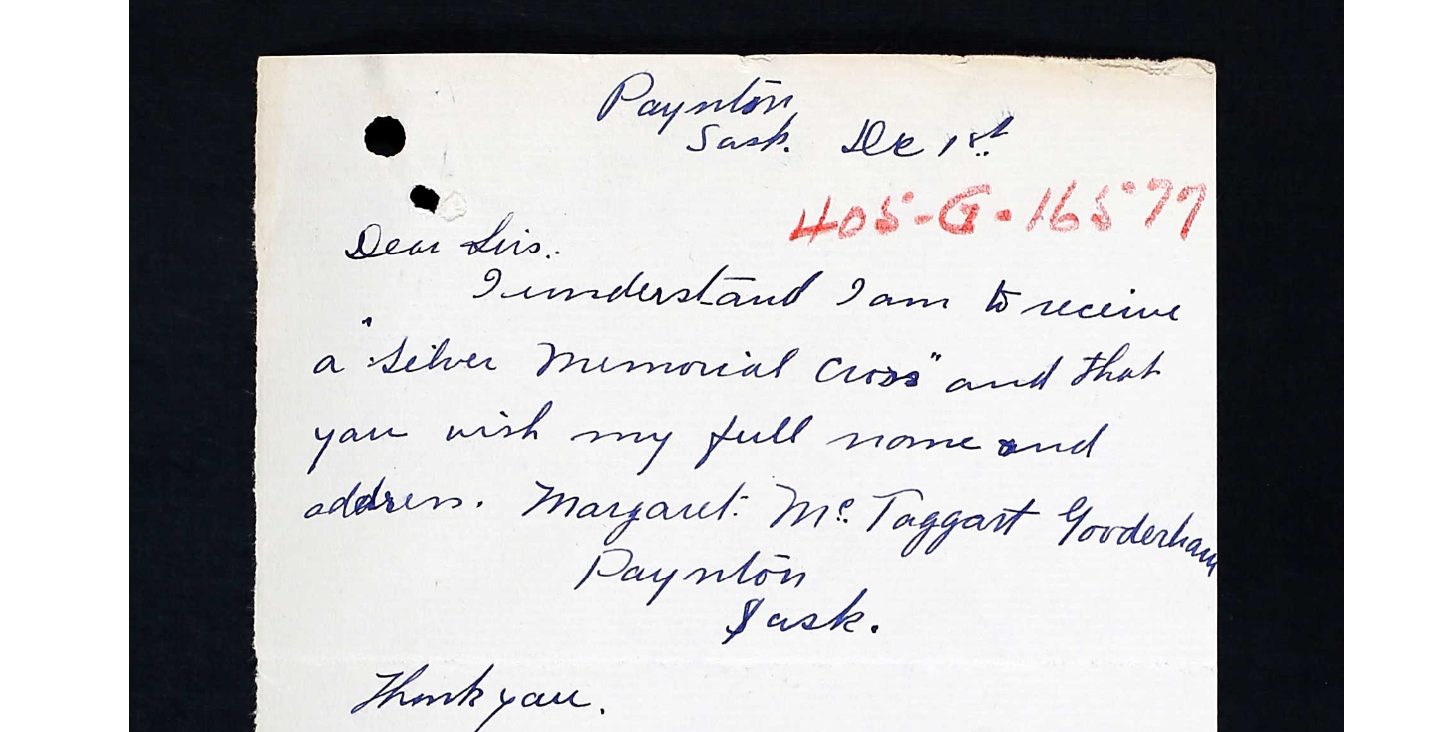 Paynton
Sask. Dec 1st.
405-G-16577
Dear Sirs.
I understand I am to receive
a "Silver Memorial Cross" and that
you wish my full name and
address. Margaret Mc. Taggart Gooderham
Paynton
Sask.
Thank you.